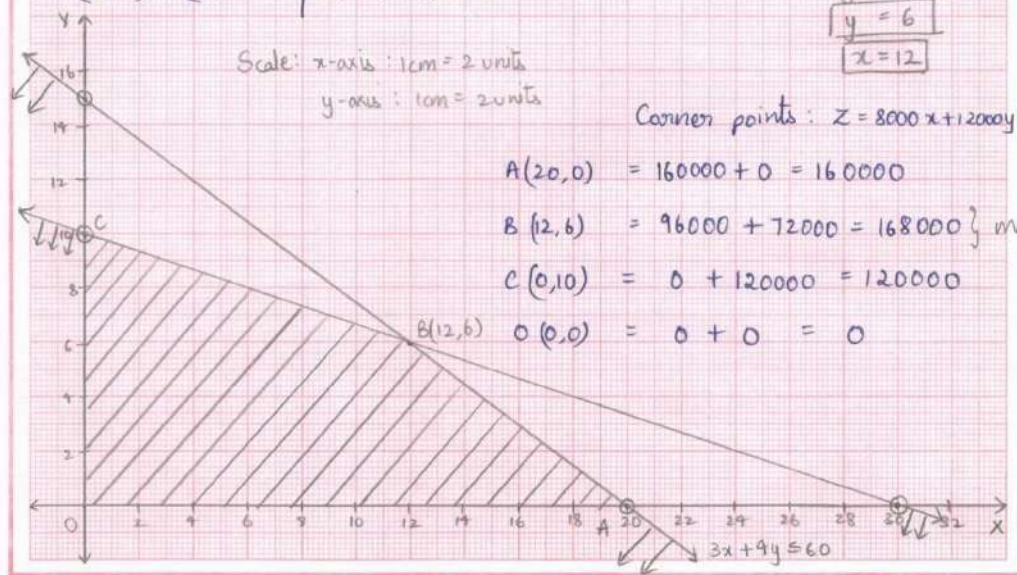 y = 6
x = 12
Scale: x-axis : 1cm = 2 units
y-axis : 1cm = 2 units
Corner points : Z = 8000x + 12000y
A(20,0) = 160000 + 0 = 160000
B (12,6) = 96000 + 72000 = 168000 }
C (0,10) = 0 + 120000 = 120000
O (0,0) = 0 + 0 = 0
Y
16
14
12
10
C
8
6
B(12,6)
4
2
O 2 4 6 8 10 12 14 16 18 A 20 22 24 26 28 30 32 X
3x+4y≤60